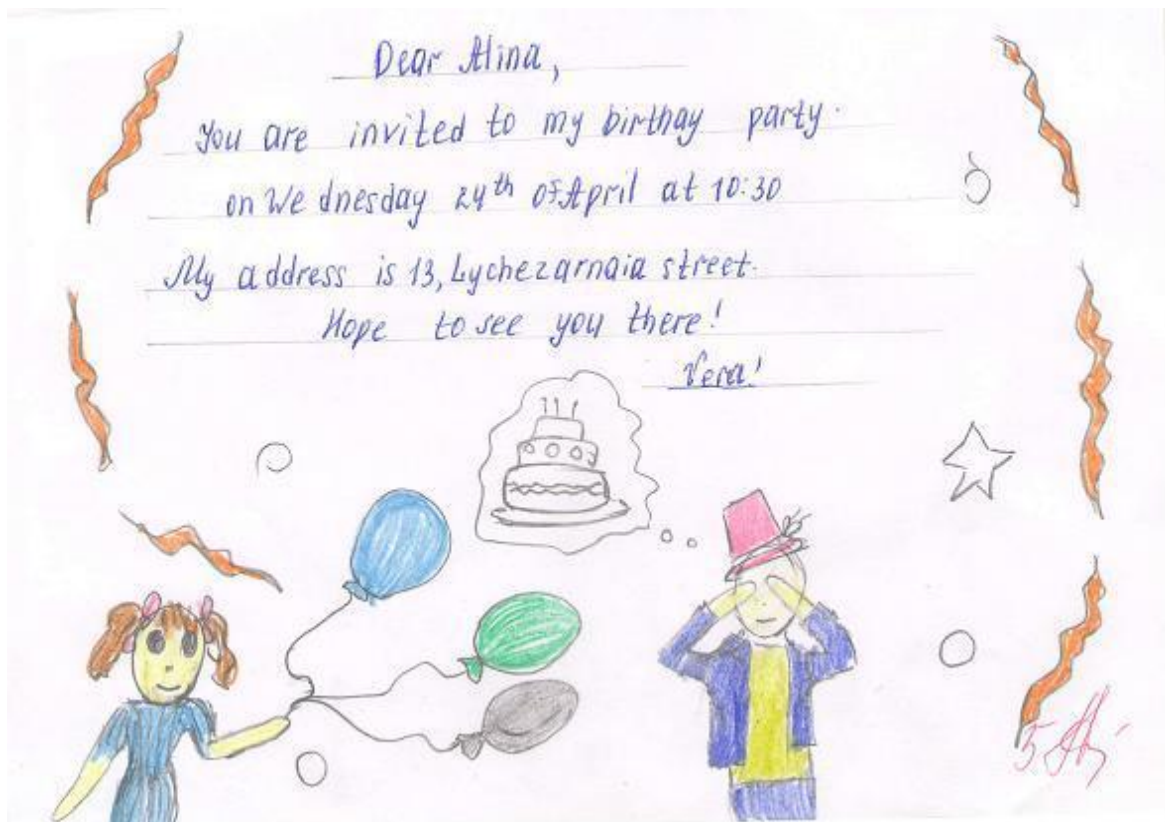 Dear Alina,
You are invited to my birthay party.
on We dnesday 24th of April at 10:30
My address is 13, Lychezarnaia street.
Hope to see you there!
Vera!
5.